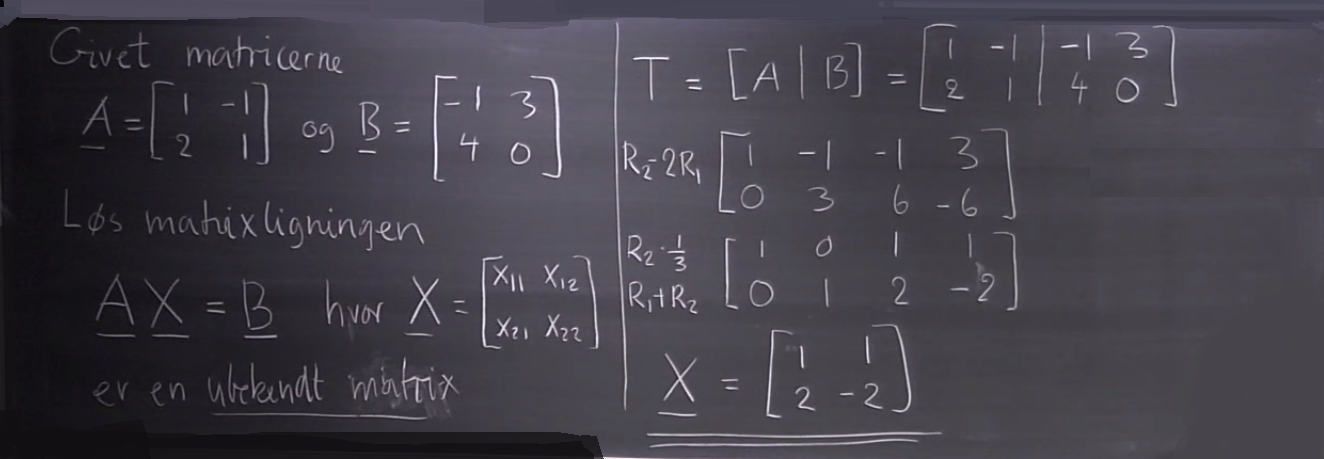 Givet matricerne
A = [1 -1; 2 1] og B = [-1 3; 4 0]
Løs matrixligningen
A X = B hvor X = [x11 x12; x21 x22]
er en ubekendt matrix
T = [A | B] = [1 -1 | -1 3; 2 1 | 4 0]
R2-2R1 [1 -1 -1 3; 0 3 6 -6]
R2·1/3
R1+R2 [1 0 1 1; 0 1 2 -2]
X = [1 1; 2 -2]